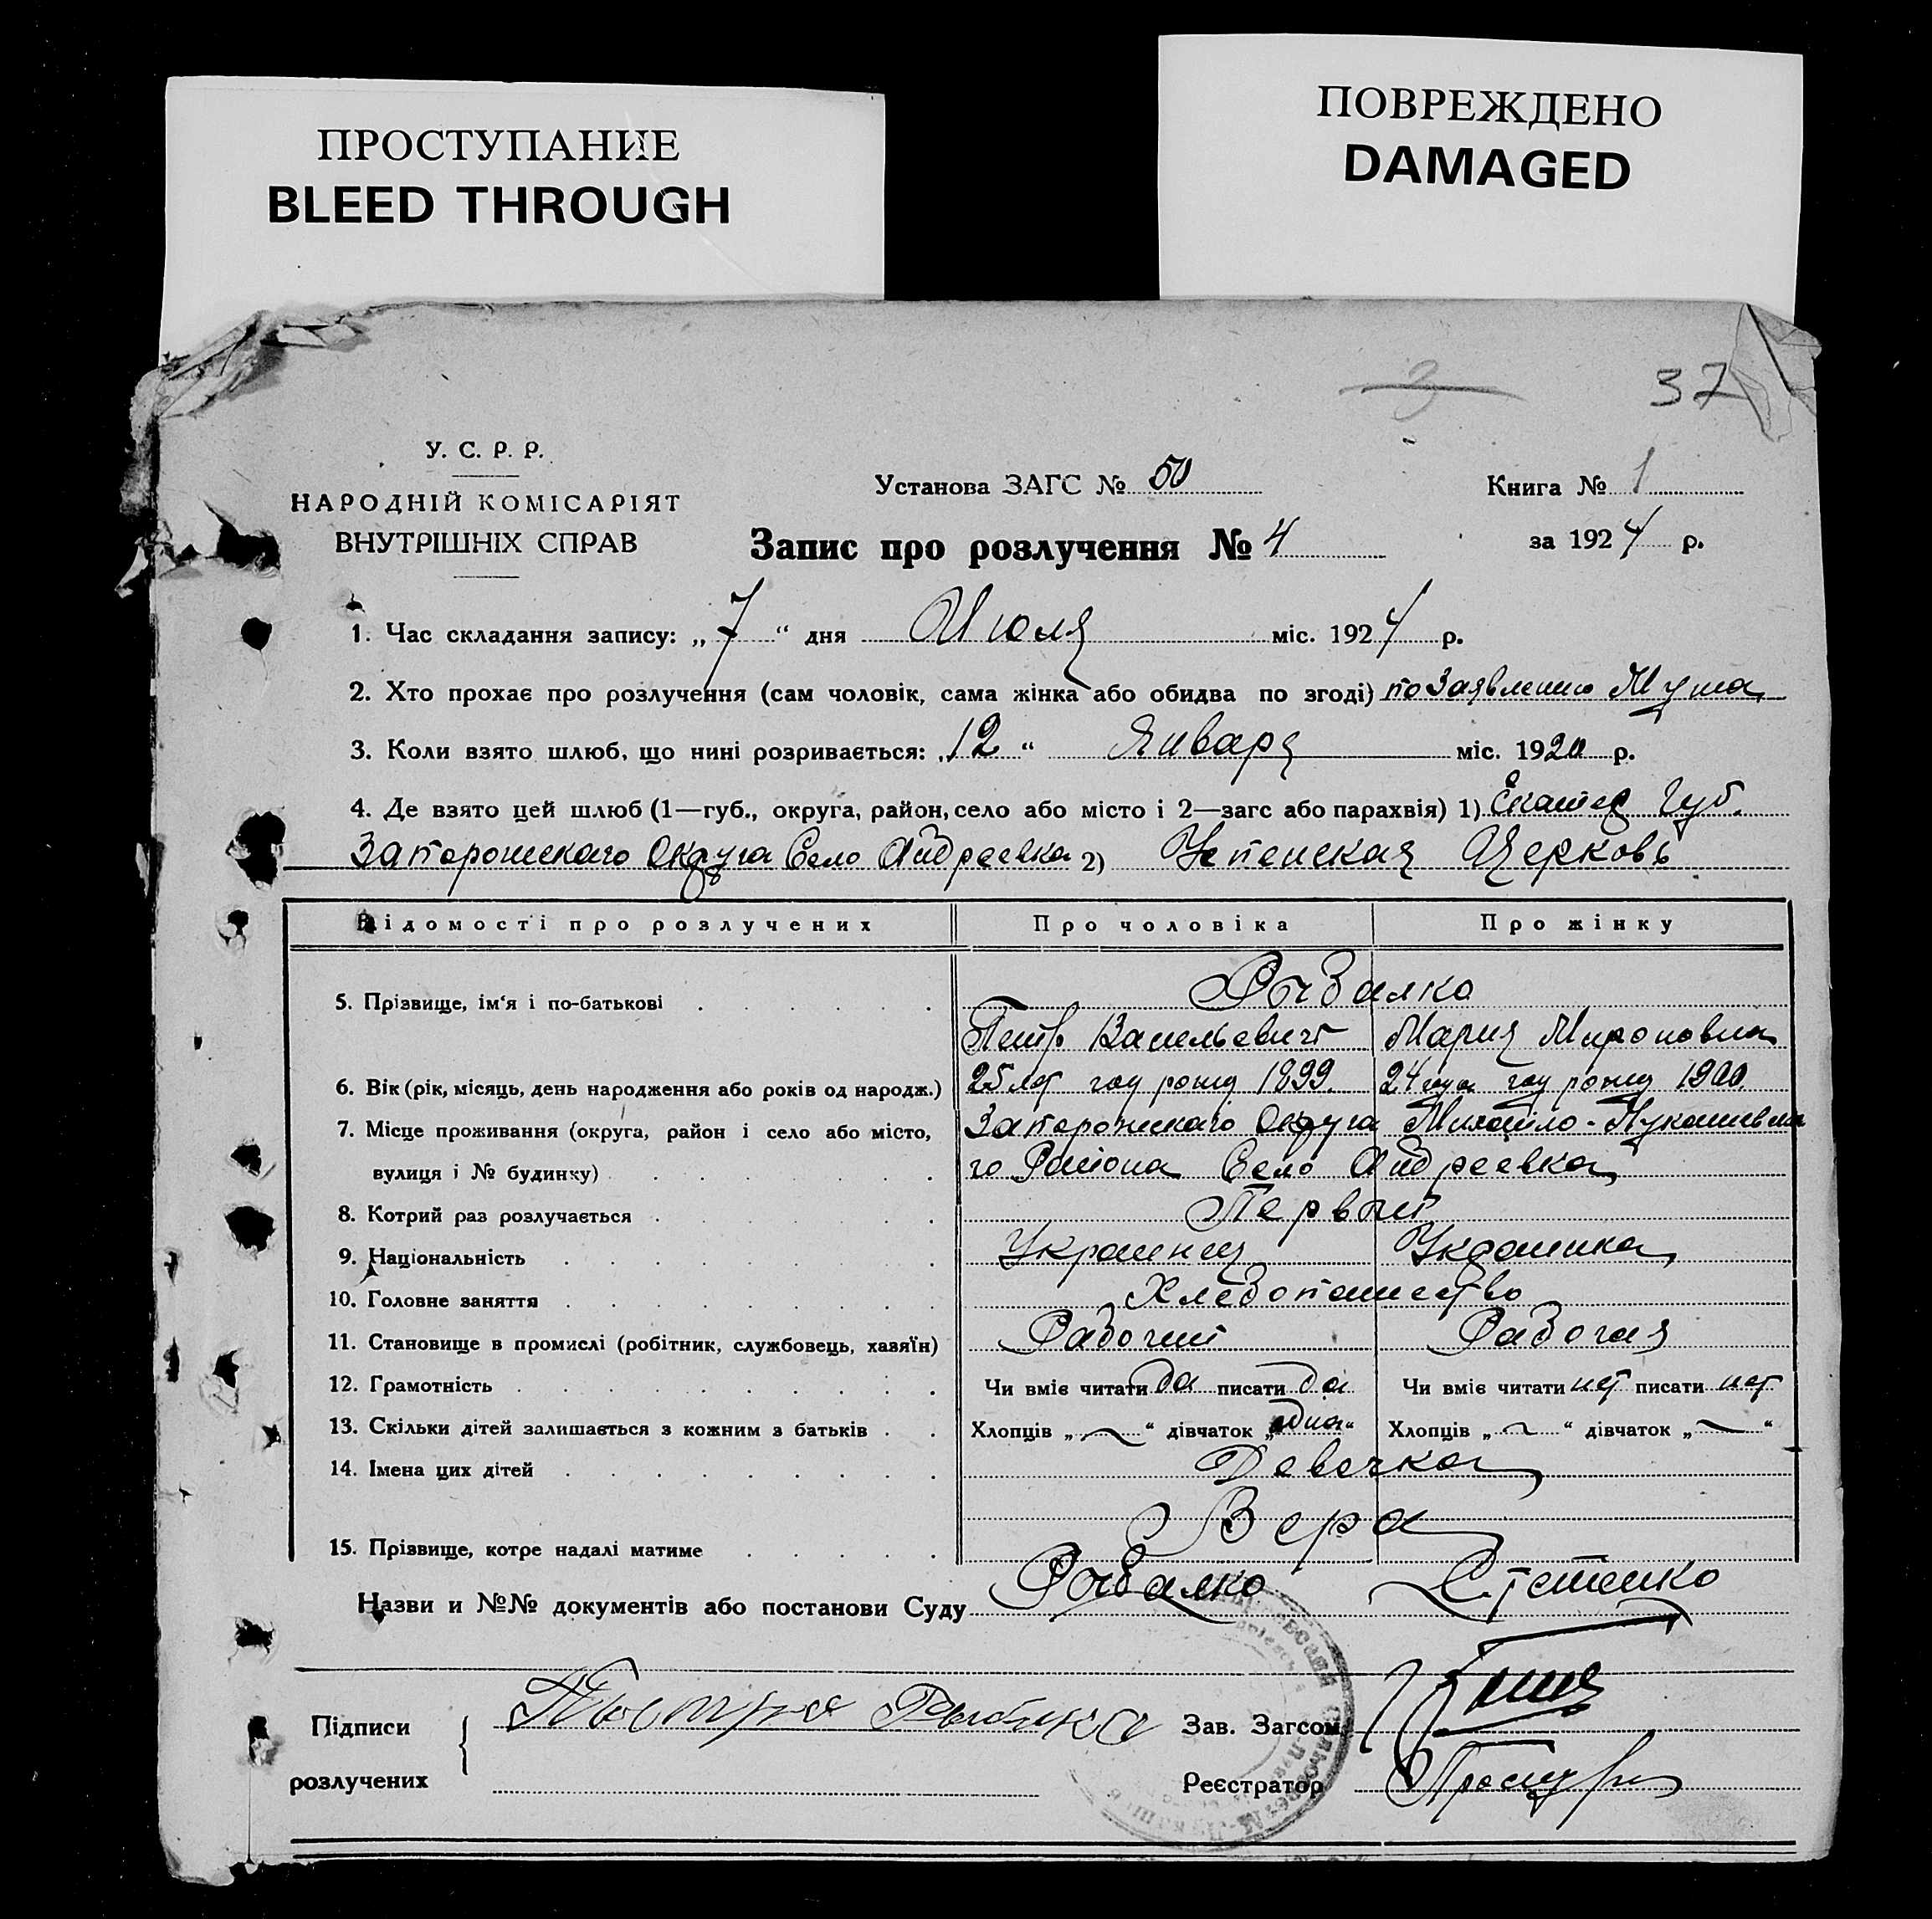 ПРОСТУПАНИЕ
BLEED THROUGH
ПОВРЕЖДЕНО
DAMAGED
3
37
У. С. Р. Р.
НАРОДНІЙ КОМІСАРІЯТ
ВНУТРІШНІХ СПРАВ
Установа ЗАГС № 50
Книга № 1
Запис про розлучення № 4
за 1924 р.
1. Час складання запису: „7“ дня Июля міс. 1924 р.
2. Хто прохає про розлучення (сам чоловік, сама жінка або обидва по згоді) по Заявлению Мужа
3. Коли взято шлюб, що нині розривається: „12“ Января міс. 1920 р.
4. Де взято цей шлюб (1—губ., округа, район, село або місто і 2—загс або парахвія) 1) Екатер Губ.
Запорожскаго Округа Село Андреевка 2) Успенская Церковь
Відомості про розлучених Про чоловіка Про жінку
5. Прізвище, ім'я і по-батькові Рыбалко
Петр Васильевич Мария Мироновна
6. Вік (рік, місяць, день народження або років од народж.) 25 лет год рожд 1899. 24 года год рожд 1900
7. Місце проживання (округа, район і село або місто, Запорожскаго Округа Михайло-Лукашевска
вулиця і № будинку) го Района Село Андреевка
8. Котрий раз розлучається Первый
9. Національність Украинец Украинка
10. Головне заняття Хлебопашество
11. Становище в промислі (робітник, службовець, хазяїн) Рабочий Рабочая
12. Грамотність Чи вміє читати да писати да Чи вміє читати нет писати нет
13. Скільки дітей залишається з кожним з батьків Хлопців „ “ дівчаток „одна“ Хлопців „ “ дівчаток „ “
14. Імена цих дітей Девочка
Вера
15. Прізвище, котре надалі матиме
Рыбалко Стеценко
Назви и №№ документів або постанови Суду
Підписи
розлучених
Зав. Загсом
Реєстратор